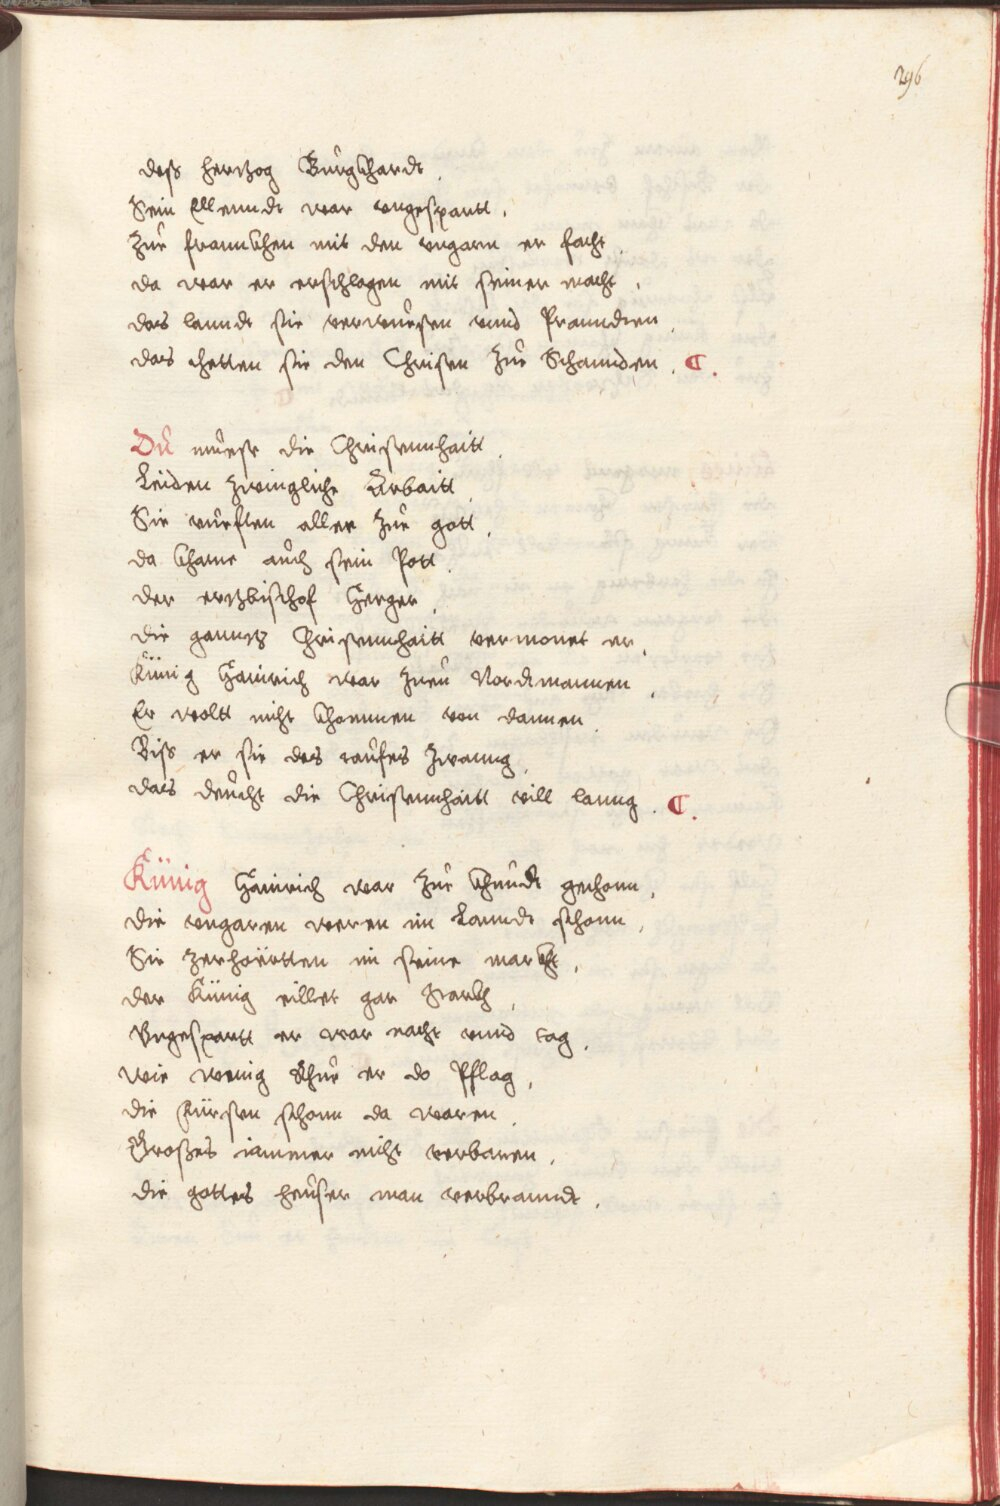 296
dess hertzog Bůrgkhardt.
Sein Ellenndt war vngespartt,
Zůe frannckhen mit den vngarn er facht.
da war er erschlagen mit seiner macht,
das lanndt sie verwůesten vnnd Pranndten.
das thetten sie den Christen Zůe Schannden. ¶.
Dů mueste die Christennhaitt.
Leiden zwingliche Arbaitt.
Sie růefften aller Zůe gott,
da khame aůch sein Pott.
der ertzbischof Herger,
die ganntz Christennhaitt vermonet er,
Künig Hainrich war zuen Nordtmannen.
Er wollt nicht khommen von dannen.
Biss er sie des taůfes Zwanng,
das deůcht die Christennhaitt vill lanng. ¶.
Künig Hainrich war Zůe khůndt gethonn,
die vngaren weren im Lanndt schonn,
Sie zerstörtten im seine marckht,
der Künig eillet gar starckh,
Vngespartt er war nacht vnnd tag,
wie wenig Rhůe er do Pflag,
die Fürsten schonn da waren.
Großes iammer nicht verbaren,
die gottes heůser man verbranndt,